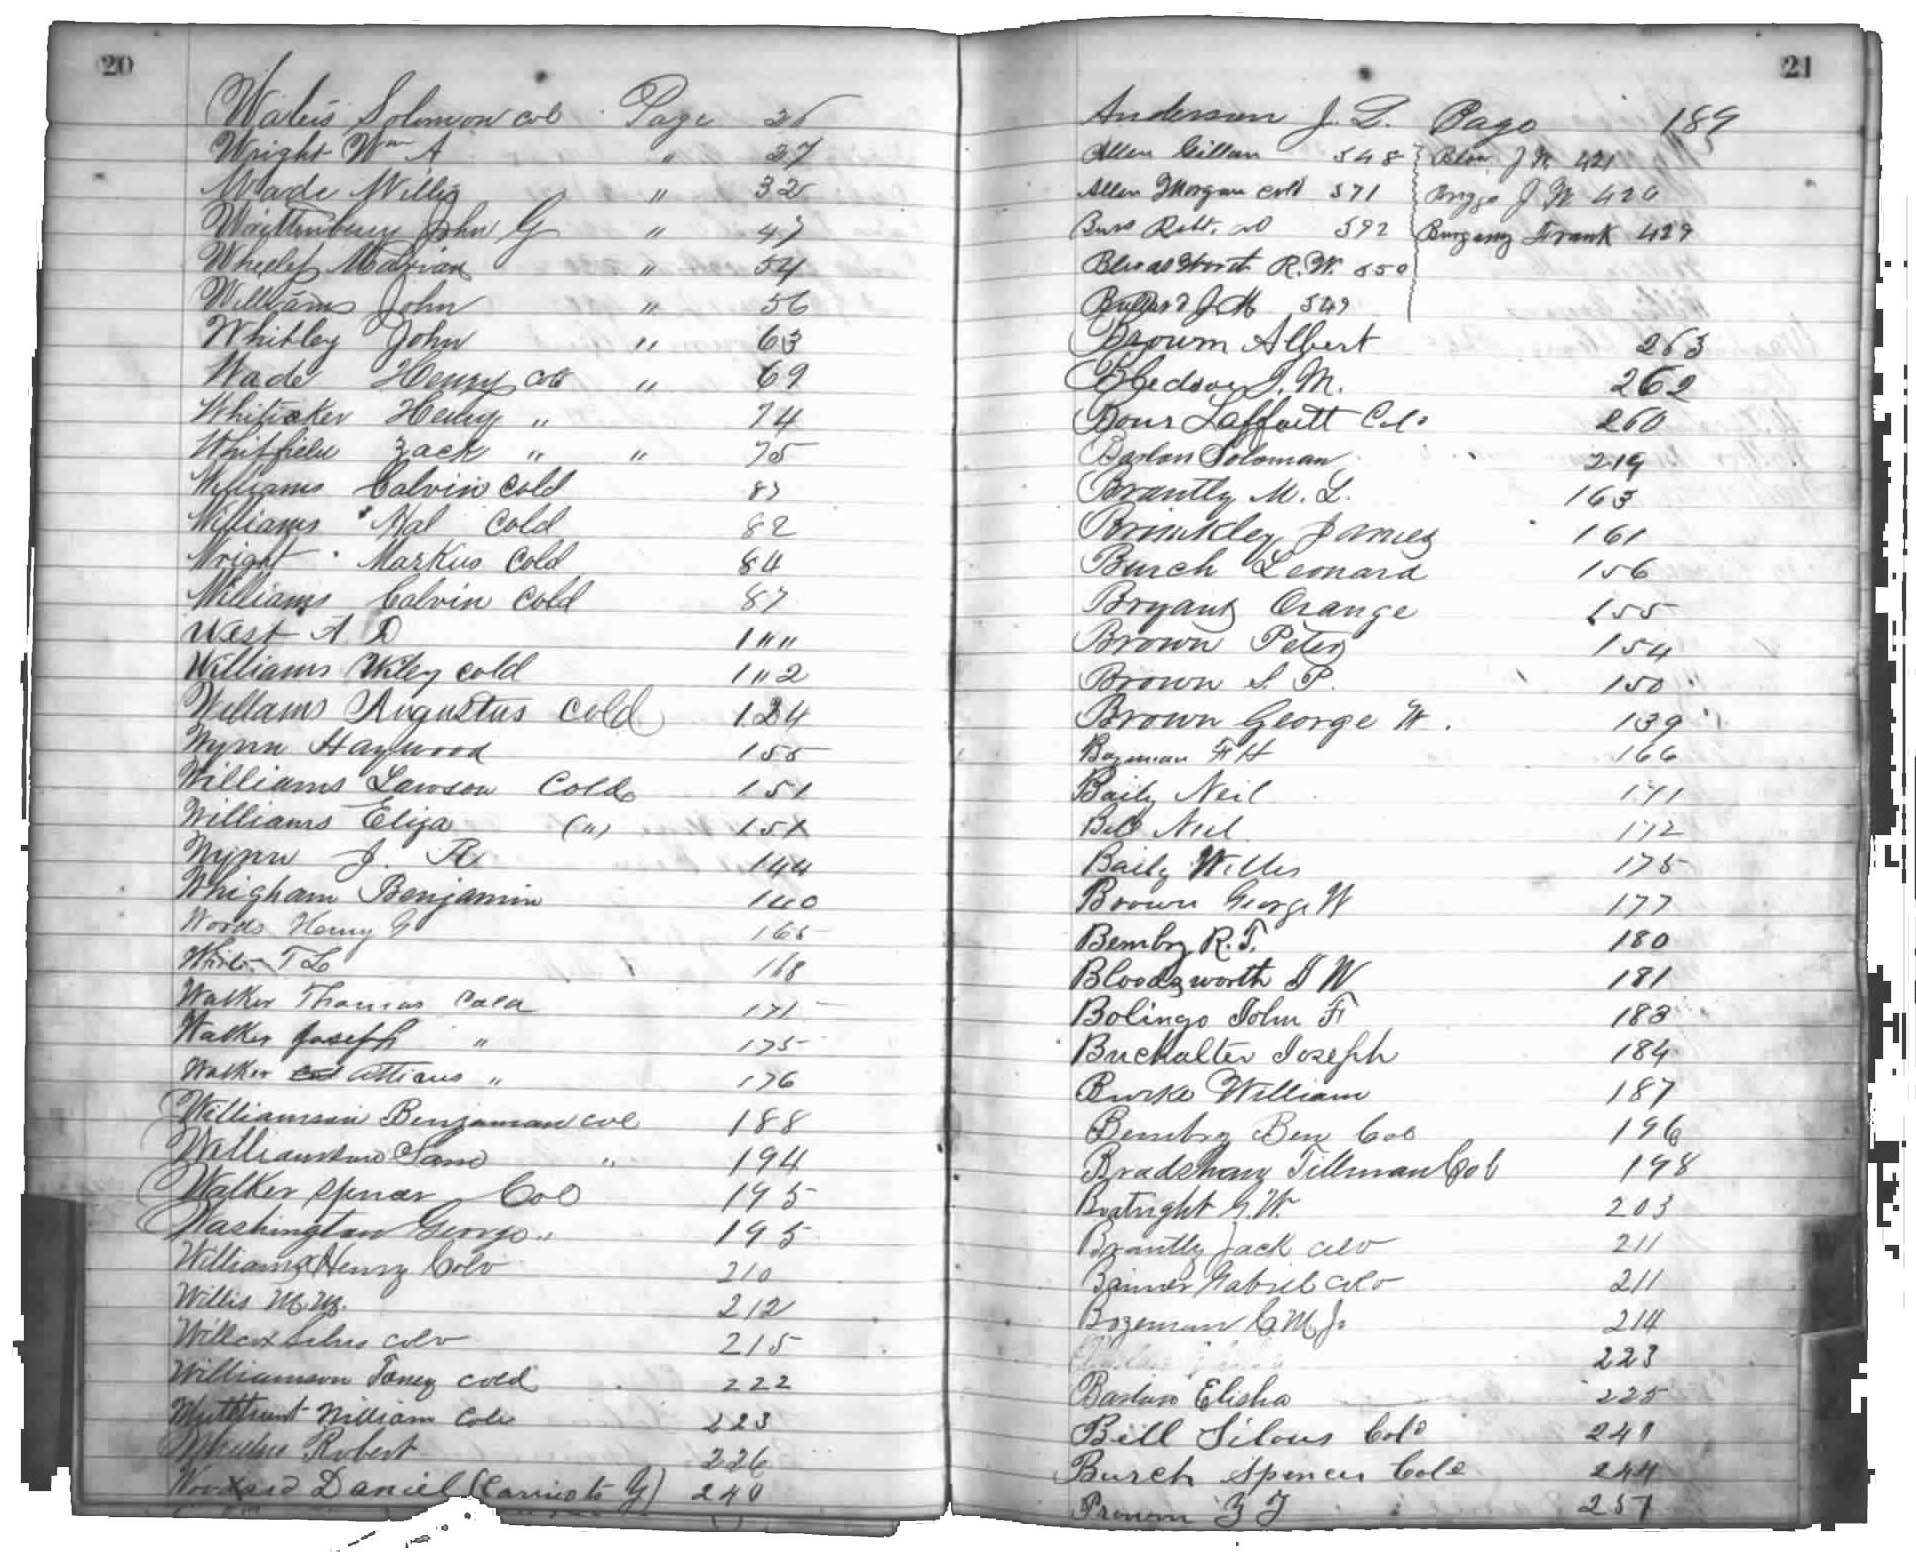 20
Solomon col Page 26
Wright Wm A " 27
Wade Willis " 32
Writtenberry John G " 47
Wheeler Marion " 54
Williams John " 56
Whitley John " 63
Wade Henry col " 69
Whiticker Henry " 74
Whitfield Zack " " 75
Williams Calvin Cold 87
Williams Hal Cold 82
Wright Markus Cold 84
Williams Calvin Cold 87
West A D 1""
Williams Wiley cold 1"2
Willams Augustus Cold 124
Wynn Haywood 155
Williams Lawson Cold 151
Williams Eliza (") 151
Wynn J. R 144
Whigham Benjamin 140
Woods Henry G 165
T L 168
Walker Thomas Cold 171
Walker Joseph " 175
Walker atticus " 176
Williamson Benjaman col 188
Williamson Sam " 194
Walker Spencer Col 195
Washington George " 195
Williams Henry Colo 210
Willis M. M. 212
Willcox Silus colo 215
Williamson Toney cold 222
William Col 223
Wheeler Robert 226
Woodard Daniel (Carried to Y) 240
21
Anderson J. L. Page 189
Allen Gillam 548 J W 421
Allen Morgan cold 571 Briggs J W 420
Robt. col 592 Frank 429
Bloodsworth R. W. 550
Bullard J M 549
Brown Albert 263
Bledsoe J. M. 262
Laffaitt Col 260
Barlow Soloman 219
Brantly M. L. 163
Brinkley James 161
Burch Leonard 156
Bryant Orange 155
Brown Peter 154
Brown S. P. 150
Brown George W. 139
Bozeman F H 166
Baily Neil 171
Bell Neil 172
Baily Willis 175
Brown George W 177
Bembry R. T. 180
Bloodsworth D W 181
Bolingo John F 183
Buckalter Joseph 184
Burke William 187
Bembry Ben Col 196
Bradshaw Tillman Col 198
Boatright G. W. 203
Brantly Jack colo 211
Gabriel colo 211
Bozeman C M Jr 214
223
Barlow Elisha 225
Bell Silous Cold 241
Burch Spencer Cold 244
Brown Z T 257